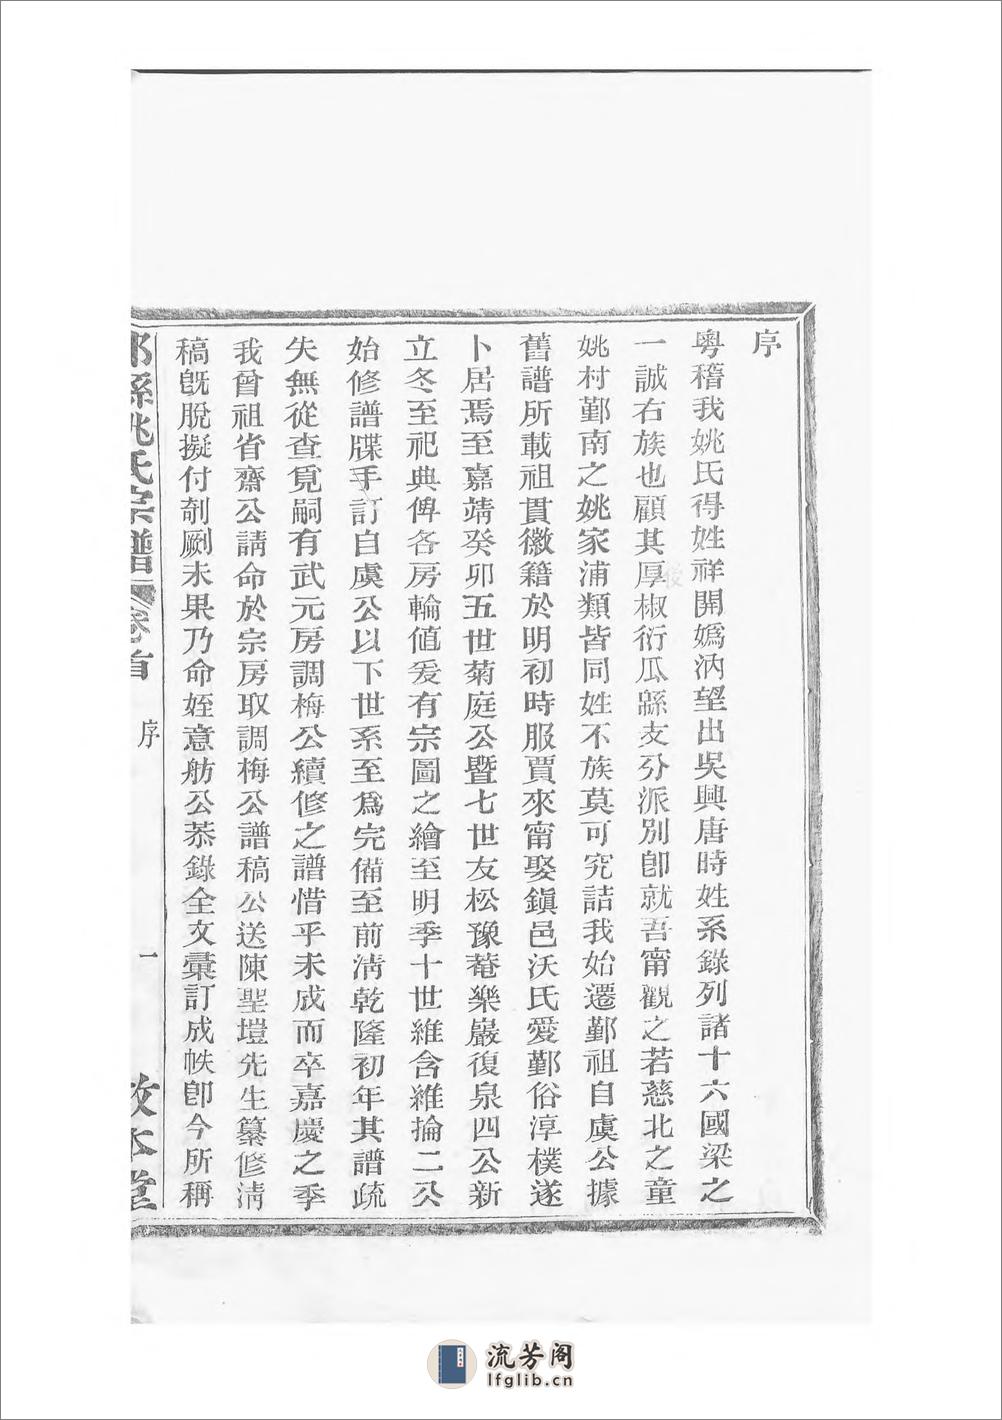 序
粵稽我姚氏得姓祥開嬀汭望出吳興唐時姓系錄列諸十六國梁之
一誠右族也顧其厚椒衍瓜緜支分派別卽就吾甯觀之若慈北之童
姚村鄞南之姚家浦類皆同姓不族莫可究詰我始遷鄞祖自虞公據
舊譜所載祖貫徽籍於明初時服賈來甯娶鎭邑沃氏愛鄞俗淳樸遂
卜居焉至嘉靖癸卯五世菊庭公曁七世友松豫菴樂巖復泉四公新
立冬至祀典俾各房輪値爰有宗圖之繪至明季十世維含維掄二公
始修譜牒手訂自虞公以下世系至爲完備至前淸乾隆初年其譜疏
失無從查覓嗣有武元房調梅公續修之譜惜乎未成而卒嘉慶之季
我曾祖省齋公請命於宗房取調梅公譜稿公送陳聖塏先生纂修淸
稿旣脫擬付剞劂未果乃命姪意舫公恭錄全文彙訂成帙卽今所稱
姚氏宗譜
卷首
序
一
敦本堂
流芳阁
lfglib.cn